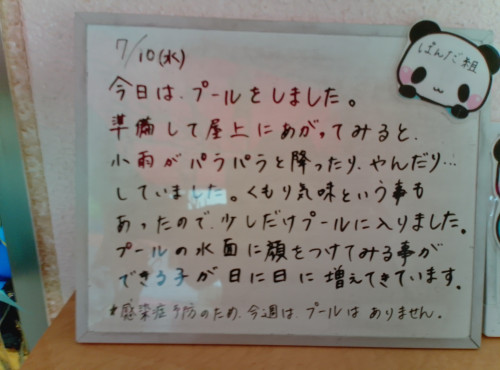 7/10(水)
ぱんだ組
今日は、プールをしました。
準備して屋上にあがってみると、
小雨がパラパラと降ったり、やんだり…
していました。くもり気味という事も
あったので、少しだけプールに入りました。
プールの水面に顔をつけてみる事が
できる子が日に日に増えてきています。
*感染症予防のため、今週は、プールはありません。